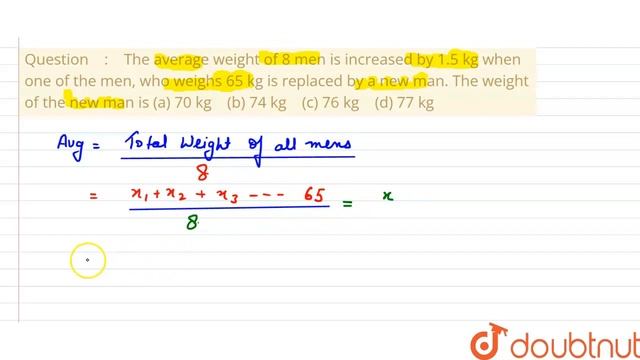 Question : The average weight of 8 men is increased by 1.5 kg when
one of the men, who weighs 65 kg is replaced by a new man. The weight
of the new man is (a) 70 kg (b) 74 kg (c) 76 kg (d) 77 kg
Avg = Total Weight of all mens
8
= x₁ + x₂ + x₃ --- 65 = x
8
doubtnut